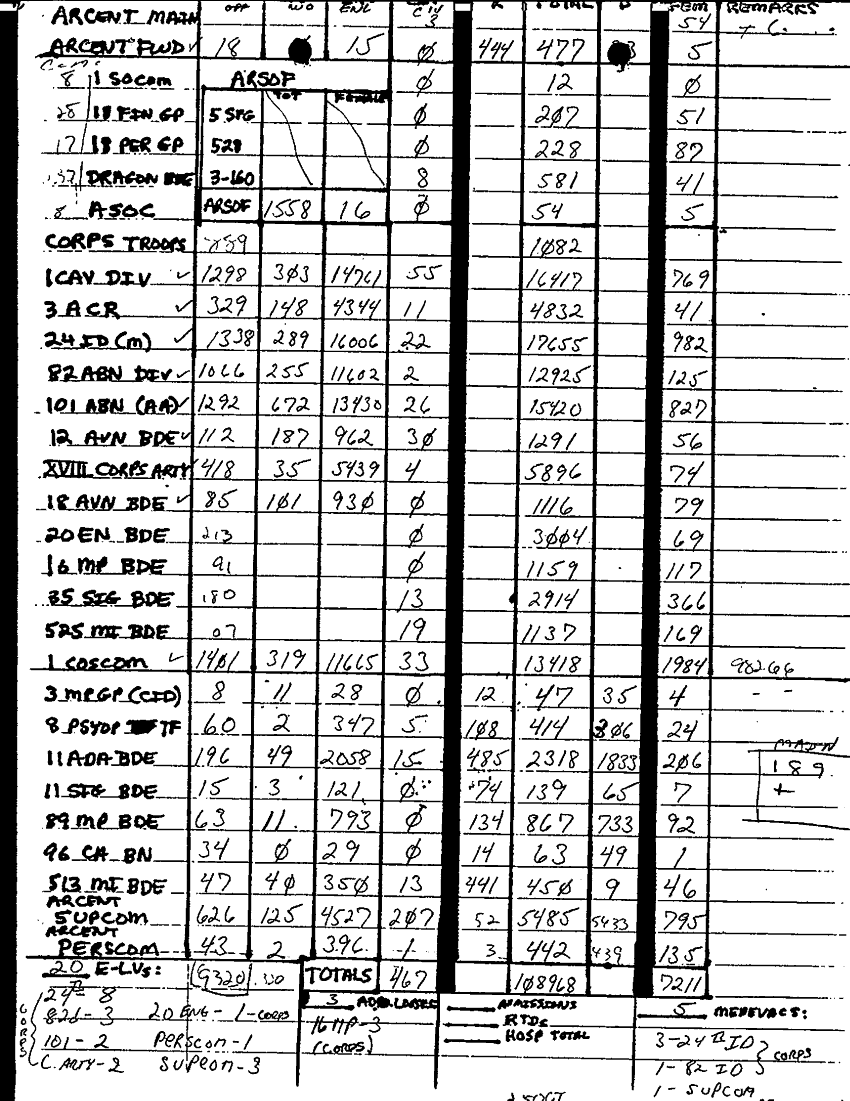 OFF WO ENL CIV TOTAL FEM REMARKS
ARCENT MAIN 3 54
ARCENT FWD ✓ 18 15 Ø 444 477 5
8 1 SOCOM ARSOF Ø 12 Ø
28 18 FIN GP 5 SFG TOT FEMALE Ø 2Ø7 51
17 18 PER GP 528 Ø 228 87
DRAGON BDE 3-160 8 581 41
8 ASOC ARSOF 1558 16 Ø 54 5
CORPS TROOPS 1Ø82
1 CAV DIV ✓ 1298 3Ø3 14761 55 16417 769
3 ACR ✓ 329 148 4344 11 4832 41
24 ID (M) ✓ 1338 289 16006 22 17655 982
82 ABN DIV ✓ 1066 255 11602 2 12925 125
101 ABN (AA) ✓ 1292 672 13430 26 15420 827
12 AVN BDE ✓ 112 187 962 3Ø 1291 56
XVIII CORPS ARTY 418 35 5439 4 5896 74
18 AVN BDE ✓ 85 1Ø1 93Ø Ø 1116 79
20 EN BDE 213 Ø 3ØØ4 69
16 MP BDE 91 Ø 1159 117
35 SIG BDE 180 13 2914 366
525 MI BDE 07 19 1137 169
1 COSCOM ✓ 14Ø1 319 11665 33 13418 1984
3 MP GP (CID) 8 11 28 Ø 12 47 35 4 - -
8 PSYOP TF 60 2 347 5 1Ø8 414 3Ø6 24
MAIN
11 ADA BDE 196 49 2058 15 485 2318 1833 2Ø6 189
11 SIG BDE 15 3 121 Ø 74 139 65 7 +
89 MP BDE 63 11 793 Ø 134 867 733 92
96 CA BN 34 Ø 29 Ø 14 63 49 1
513 MI BDE 47 4Ø 35Ø 13 441 45Ø 9 46
ARCENT
SUPCOM 626 125 4527 2Ø7 52 5485 5433 795
ARCENT
PERSCOM 43 2 396 1 3 442 439 135
20 E-LVs: (9320) TOTALS 467 1Ø8968 7211
24TH - 8 3 ADDN. LOSSES ADMISSIONS 5 MEDEVACS:
82d - 3 20 ENG - 1 - CORPS 16 MP - 3 RTDs
(CORPS) HOSP TOTAL
CORPS 101 - 2 PERSCOM - 1 3 - 24TH ID CORPS
C. ARTY - 2 SUPCOM - 3 1 - 82 ID
1 - SUPCOM